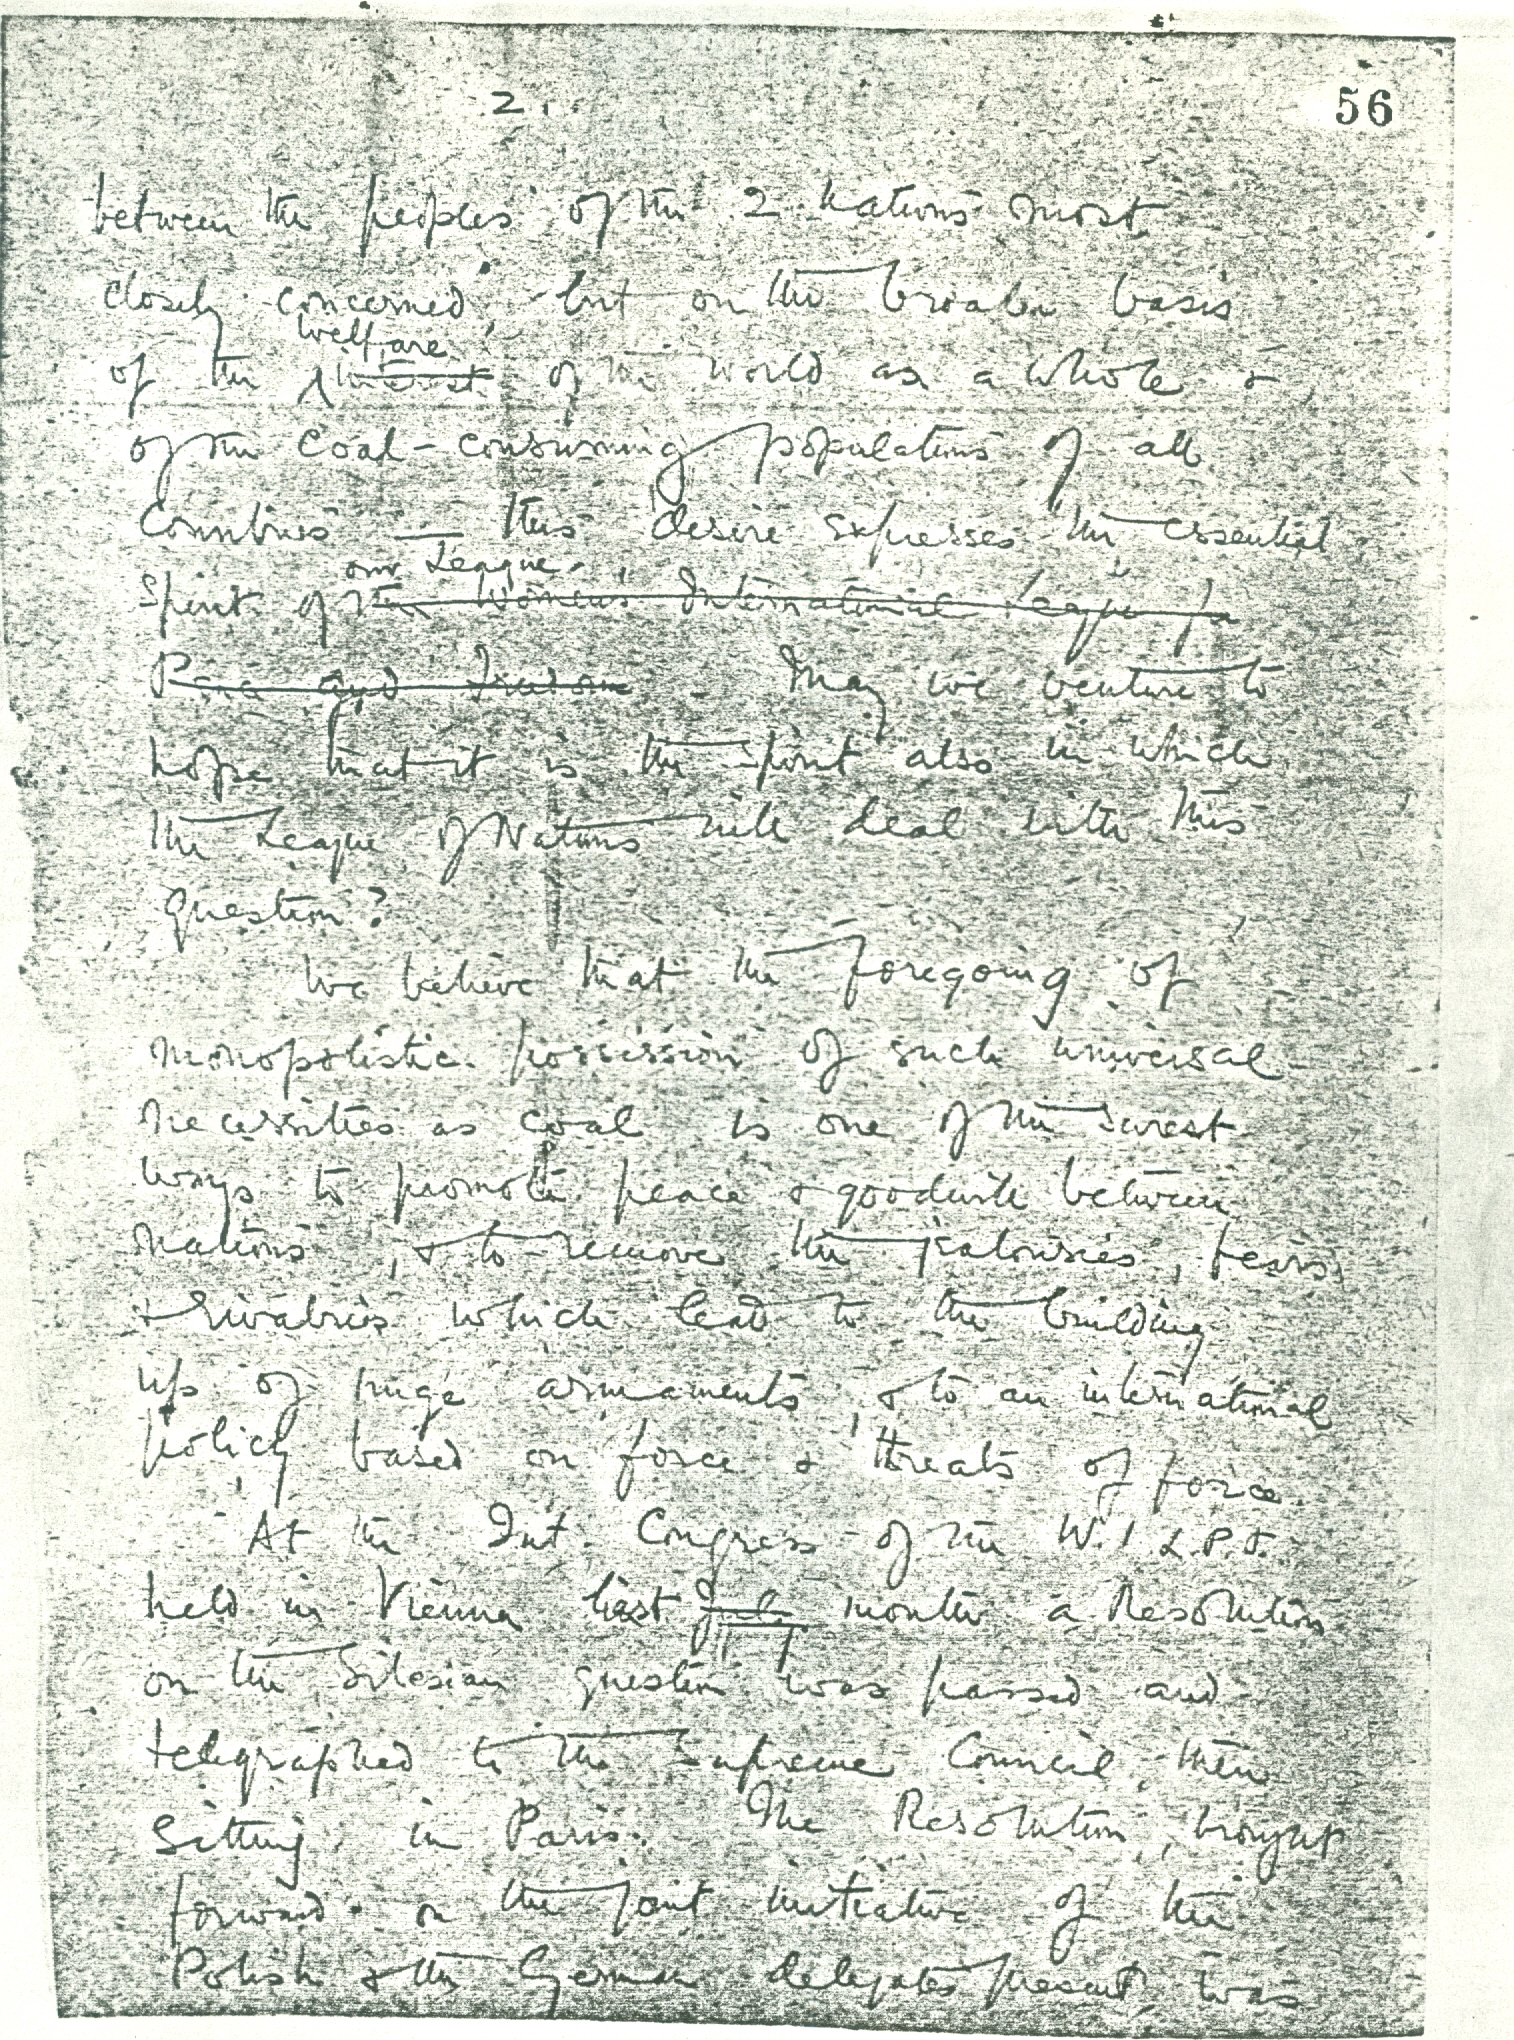 2.
56
between the peoples of the 2 nations most
closely concerned, but on the broader basis
welfare
of the interest of the world as a whole &
of the coal-consuming populations of all
countries — this desire expresses the essential
our League.
spirit of the Women's International League for
Peace and Freedom. May we venture to
hope that it is the spirit also in which
the League of Nations will deal with this
question?
We believe that the foregoing of
monopolistic possession of such universal
necessities as coal is one of the surest
ways to promote peace & goodwill between
nations, & to remove the jealousies, fears
& rivalries which lead to the building
up of huge armaments, & to an international
policy based on force & threats of force.
At the Int. Congress of the W.I.L.P.F.
held in Vienna last July month a Resolution
on the Silesian question was passed and
telegraphed to the Supreme Council, then
sitting in Paris. The Resolution, brought
forward on the joint initiative of the
Polish & the German delegates present, was